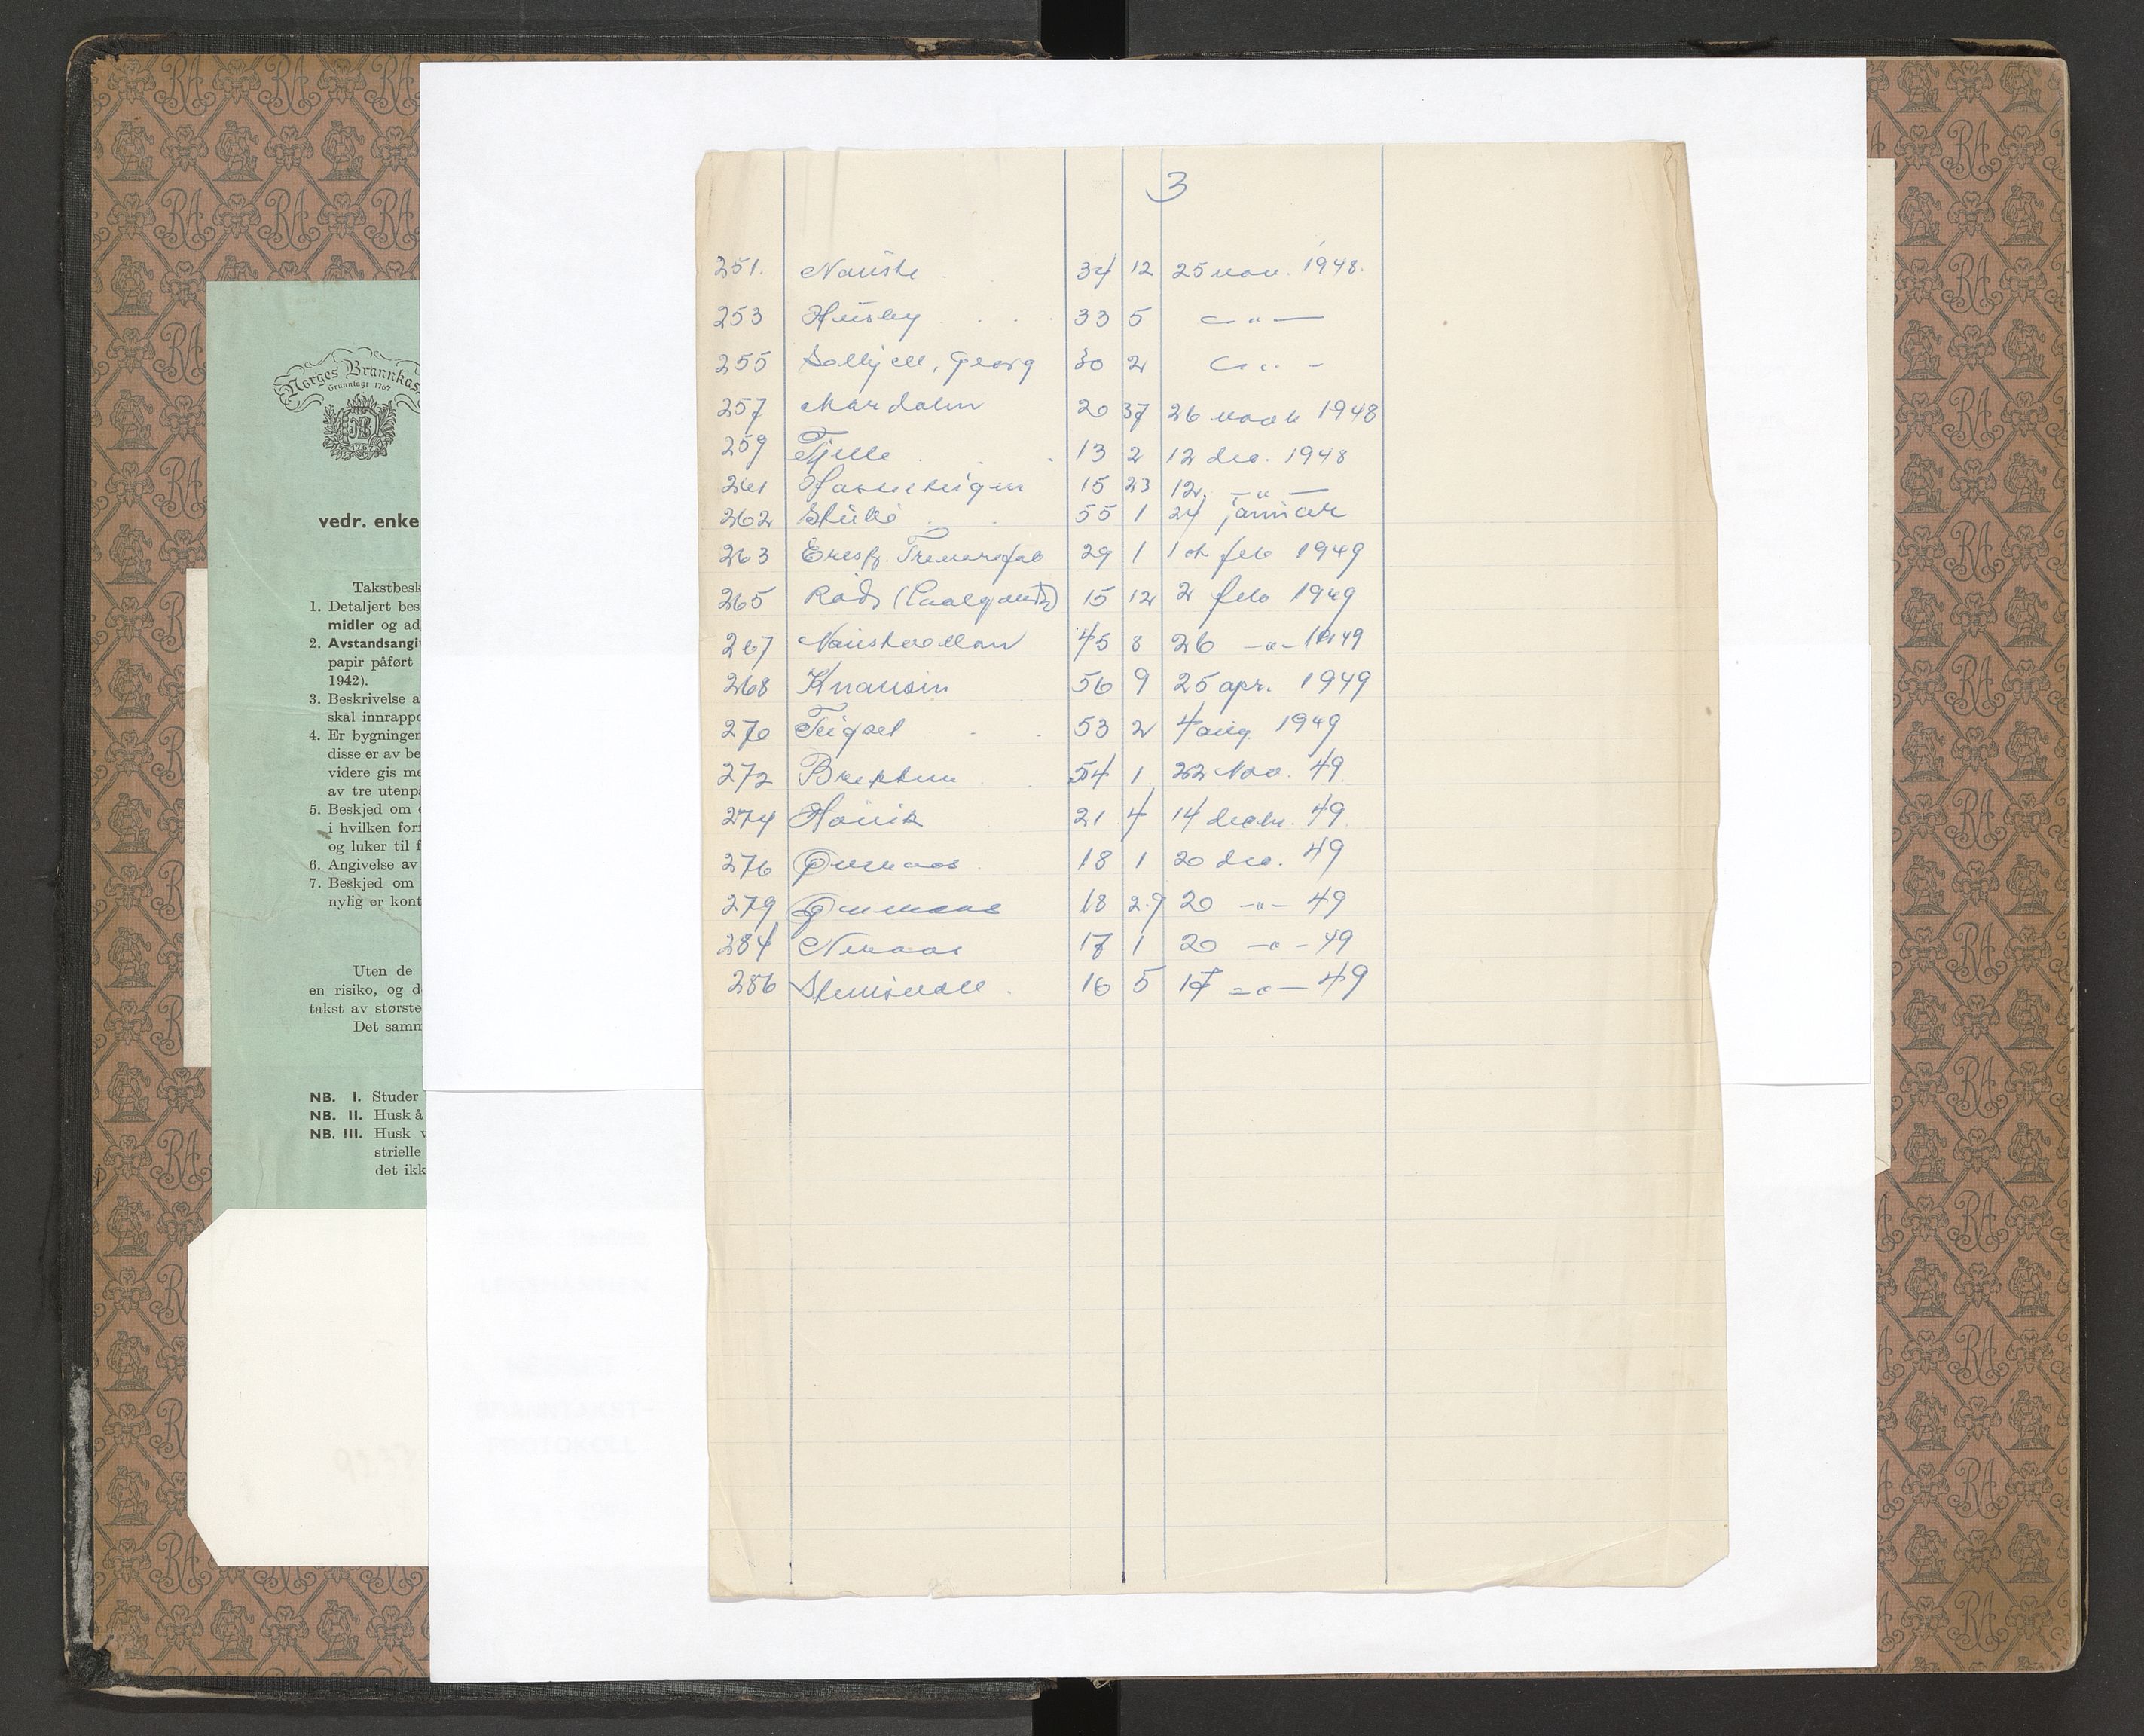 Norges Brannkas
Grunnlagt 1767
1767
vedr. enke
Takstbesk
1. Detaljert bes
midler og ad
2. Avstandsangiv
papir påført
1942).
3. Beskrivelse a
skal innrappo
4. Er bygninger
disse er av be
videre gis me
av tre utenpå
5. Beskjed om
i hvilken forf
og luker til f
6. Angivelse av
7. Beskjed om
nylig er kont
Uten de
en risiko, og d
takst av største
Det samm
NB. I. Studer
NB. II. Husk å
NB. III. Husk v
strielle
det ikk
3
251. Nauste 34 12 25 nov. 1948.
253 Husby 33 5 — " —
255 Solhjell, Georg 30 2 — " —
257 Mardalen 20 37 26 1948
259 Tjelle 13 2 12 des. 1948
261 15 23 12. — " —
262 55 1 24 januar
263 Eresfj. 29 1 1 feb 1949
265 Rød 15 12 2 feb 1949
267 Naustvollan 45 8 26 — " — 1949
268 Knausen 56 9 25 apr. 1949
270 Teigset 53 2 4 aug. 1949
272 54 1 22 Nov. 49
274 Hovik 21 4 14 desbr. 49
276 18 1 20 des. 49
279 18 2.9 20 — " — 49
284 17 1 20 — " — 49
286 16 5 17 — " — 49